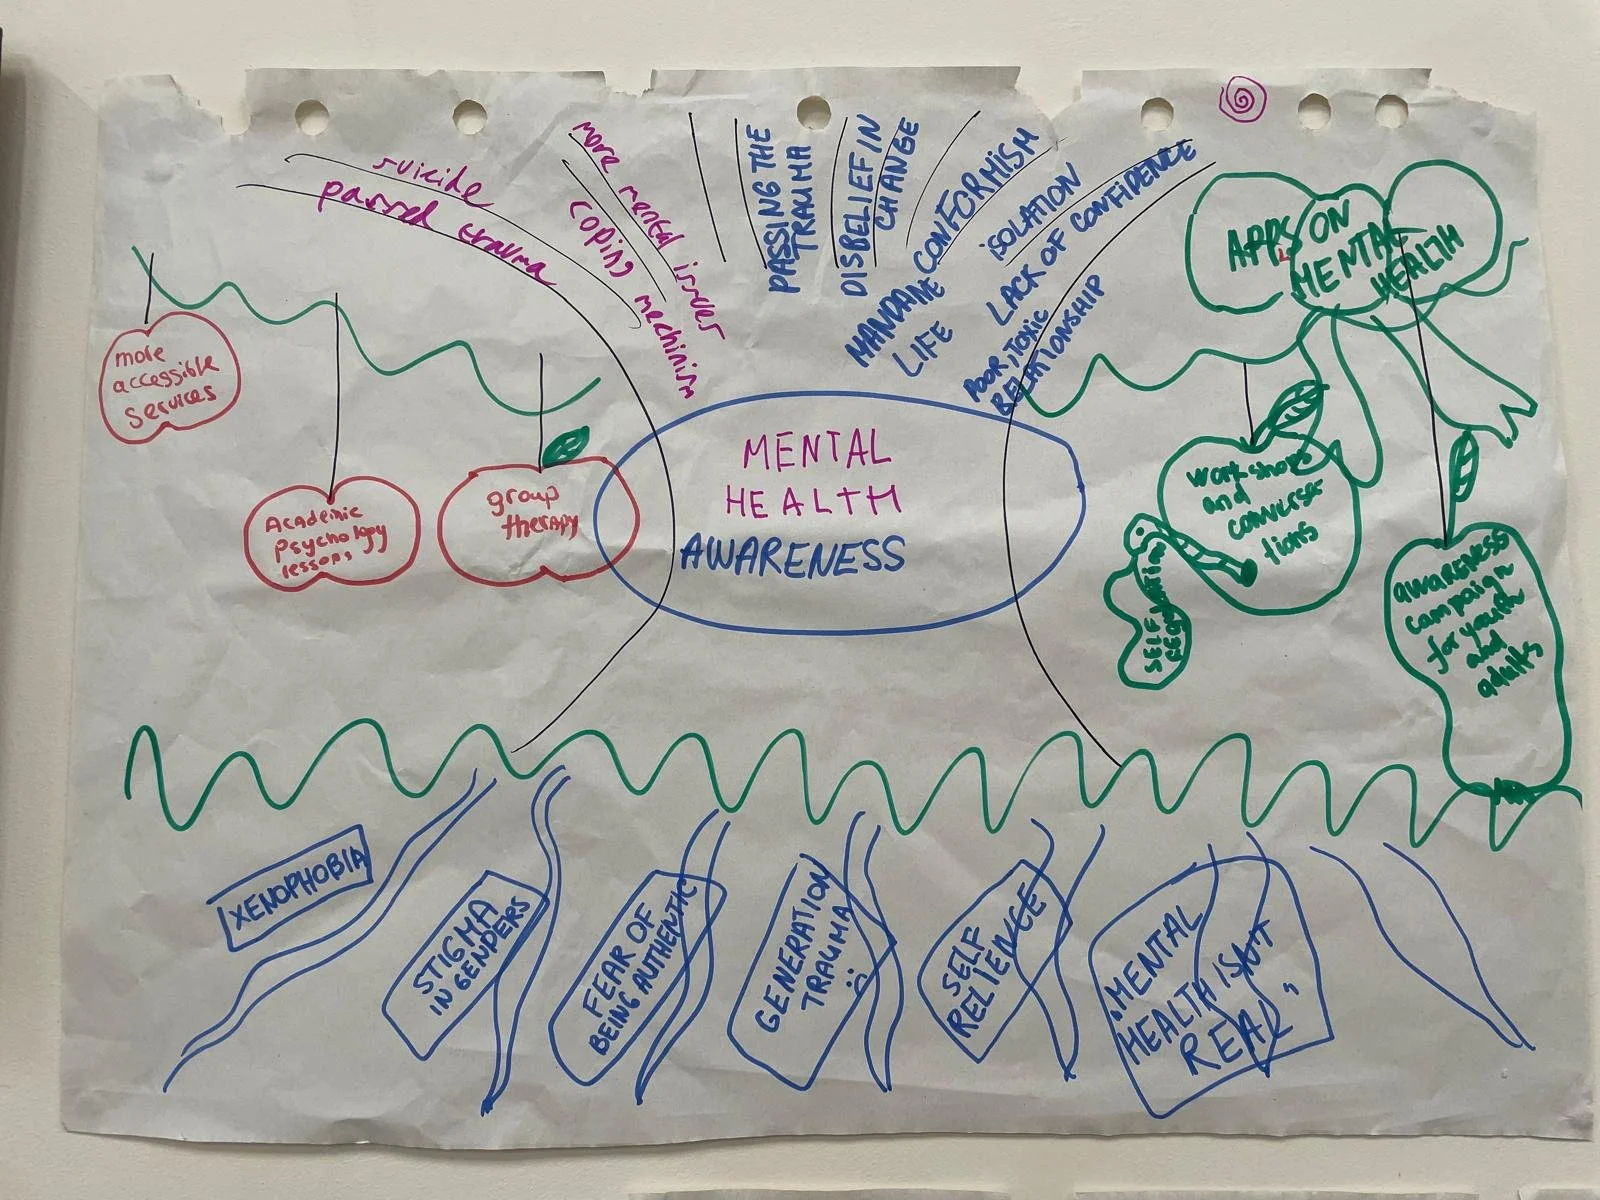 suicide
passed trauma
more mental issues
coping mechinism
PASSING THE
TRAUMA
DISBELIEF IN
CHANGE
CONFORMISM
MANDANE
LIFE
ISOLATION
LACK OF CONFIDENCE
POOR, TOXIC
RELATIONSHIP
APPS ON
MENTAL
HEALTH
more
accessible
services
Academic
psychology
lessons
group
therapy
MENTAL
HEALTH
AWARENESS
workshops
and
conversa
tions
SELF
REGULATION
awareness
campaign
for youth
and
adults
XENOPHOBIA
STIGMA
IN GENDERS
FEAR OF
BEING AUTHENTIC
GENERATION
TRAUMA
SELF
RELIENCE
„MENTAL
HEALTH ISN'T
REAL"